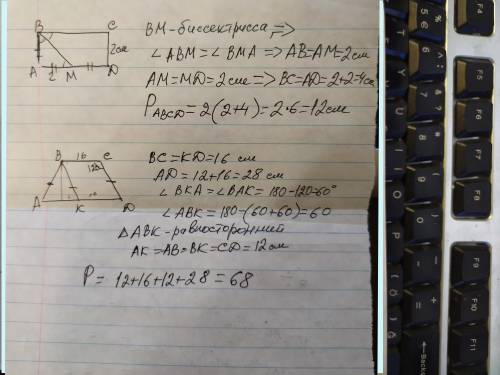 BM - биссектрисса, =>
∠ABM = ∠BMA => AB = AM = 2 см
AM = MD = 2 см => BC = AD = 2+2 = 4 см
P ABCD = 2(2+4) = 2·6 = 12 см
B C
2 см
A 2 M D
BC = KD = 16 см
AD = 12+16 = 28 см
∠BKA = ∠BAK = 180-120=60°
∠ABK = 180-(60+60) = 60
△ABK - равносторонний
AK = AB = BK = CD = 12 см
B 16 C
120
A K D
P = 12+16+12+28 = 68
F4
F5
F6
F7
F8
F9
F10
F11
Backspace